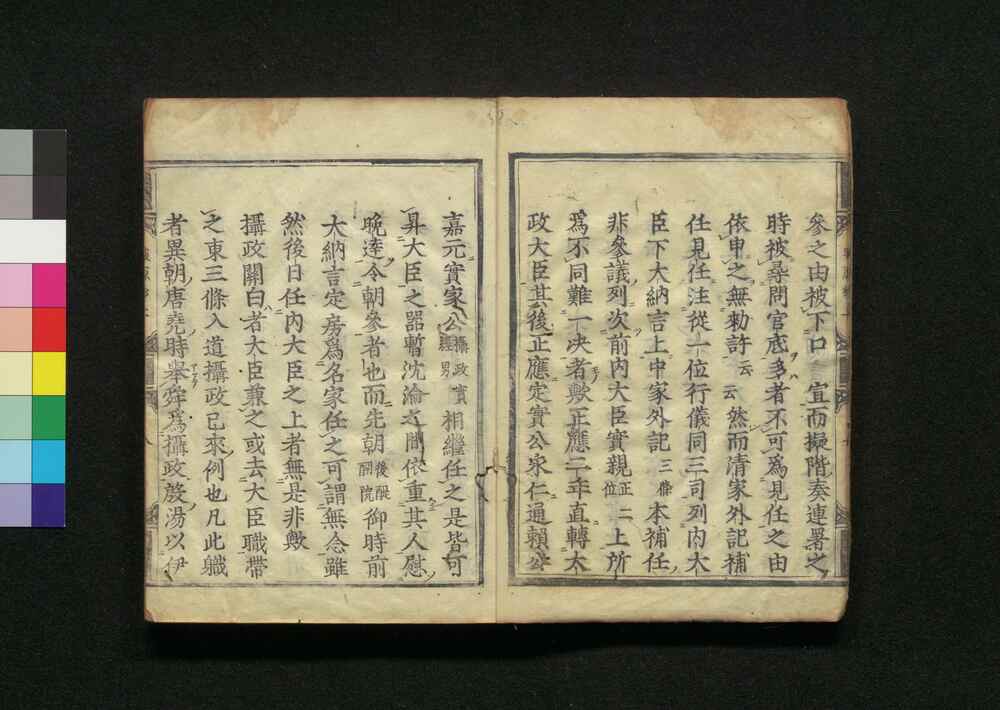 參之由被下口宜而擬階奏連署之
時被尋問官底ヲハ多者不可爲見任之由
依申之無勅許云云然而清家外記補
任見任注從一位行儀同三司列内大
臣下大納言上中家外記三條本補任
非參議列次前内大臣實親正二位上所
爲不同難一决者歟正應二年直轉大
政大臣其後正應定實公永仁通頼公
嘉元實家公攝政實經男相繼任之是皆可
昇大臣之器暫沈淪之間依重其人慰
晩達令朝參者也而先朝後醍醐院御時前
大納言定房爲名家任之可謂無念雖
然後日任内大臣之上者無是非歟
攝政關白者大臣兼之或去大臣職帶
之東三條入道攝政已來例也凡此職
者異朝唐堯時擧舜爲攝政殷湯以伊